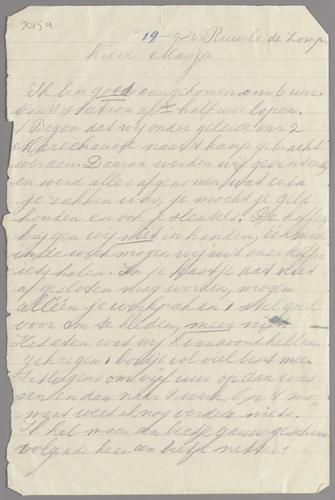 2015a
19-9-42 Ruurlo de Zomp
Lieve Marijs
Ik ben goed aangekomen om 6 uur
van 't station af 1½ half uur lopen.
Begon dat wij onder geleide van 2
Marechaussee naar 't kamp gebracht
werden. Daarna werden wij gevisiteerd
en werd alles afgenomen wat er in
je zakken was, je mocht je geld
houden en ook je sleutels. De koffer
krijgen wij niet in handen, één maal
in de week mogen wij uit onze koffer
iets halen. In je kastje dat niet
af gesloten mag worden, mogen
alléén je werkpak en 1 stel goed
voor om te kleden, meer niet
Het eten wat wij vanavond hebben
gekregen 1 bordje vol viel best mee
's Morgens om vijf uur op dan was-
sen en dan naar 't werk. Op 't mo-
ment weet ik nog verder niets.
Ik heb maar een beetje gauw geschreven
volgende keer een beetje netter.